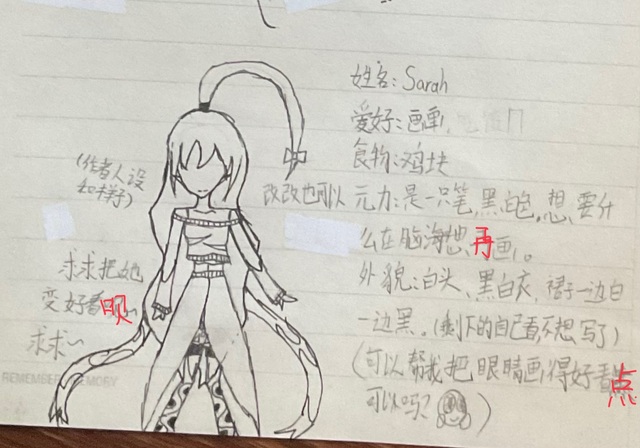 姓名:Sarah
爱好:画画,
食物:鸡块
改改也可以
元力:是一只笔,黑白色,想要什
么在脑海想,再画。
外貌:白头、黑白衣,裙子一边白
一边黑。(剩下的自己看不想写了)
(可以帮我把眼睛画得好看点
可以吗?)
(作者人设
和样子)
求求把她
变好看呗~
求求~
REMEMBER MEMORY